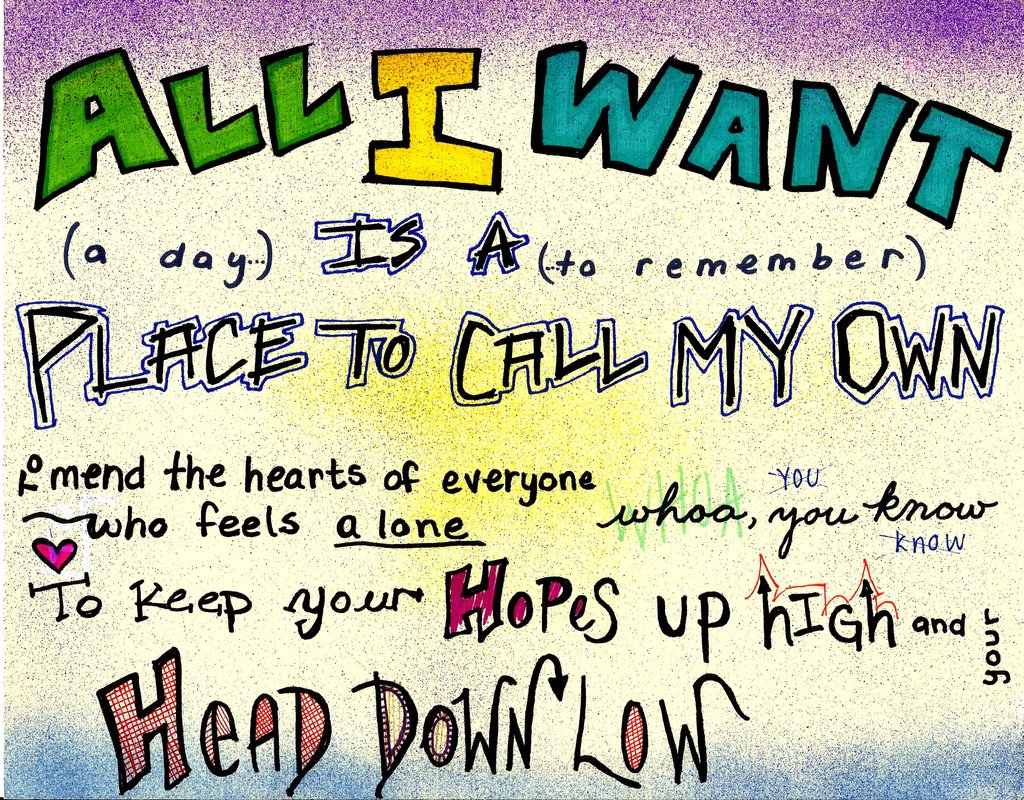 ALL I WANT
(a day...) IS A (...to remember)
PLACE TO CALL MY OWN
To mend the hearts of everyone
who feels alone WHOA whoa, you know YOU KNOW
To keep your HOPES UP hIGh and your
HEAD DOWN LOW